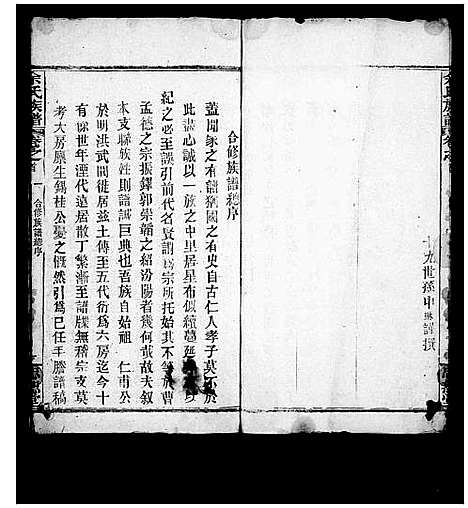 余氏族譜
卷之首
十九世孫申琳謹撰
合修族譜總序
蓋聞家之有譜猶國之有史自古仁人孝子莫不於
此盡心誠以一族之中里居星布似續蔓延
紀之必至誤引前代名賢謂爲宗所托始其不等於曹
孟德之宗振鐸郭崇韜之紹汾陽者幾何哉故夫叙
本支聯族姓則譜誠巨典也吾族自始祖 仁甫公
於明洪武間徙居兹土傳至五代衍爲六房迄今十
有餘世年湮代遠居散丁繁漸至譜牒無稽宗支莫
考大房廪生錫桂公憂之慨然引爲己任手謄譜稿
余氏族譜
卷之首
一
合修族譜總序